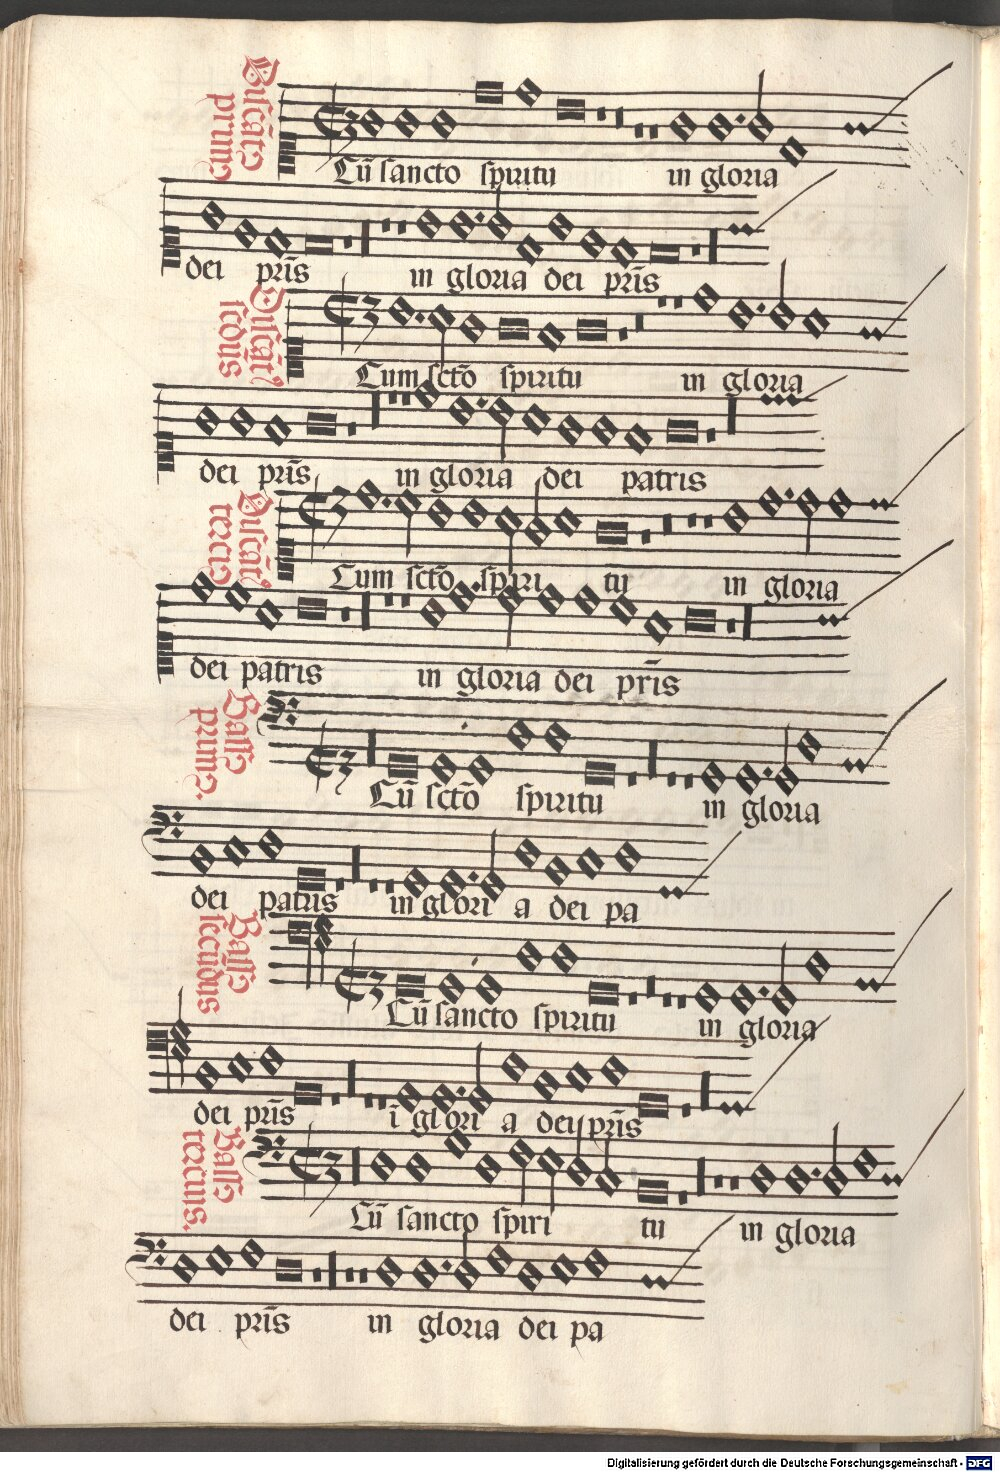 Discāt9 primus
Cū sancto spiritu in gloria
dei pr̄is in gloria dei pr̄is
Discāt9 secdus
Cum sctō spiritu in gloria
dei pr̄is in gloria dei patris
Discāt9 terci9
Cum sctō spiri tu in gloria
dei patris in gloria dei pr̄is
Bass9 primus.
Cū sctō spiritu in gloria
dei patris in glori a dei pa
Bass9 secūdus
Cū sancto spiritu in gloria
dei pr̄is ī glori a dei pr̄is
Bass9 tercius.
Cū sancto spiri tu in gloria
dei pr̄is in gloria dei pa
Digitalisierung gefördert durch die Deutsche Forschungsgemeinschaft - DFG